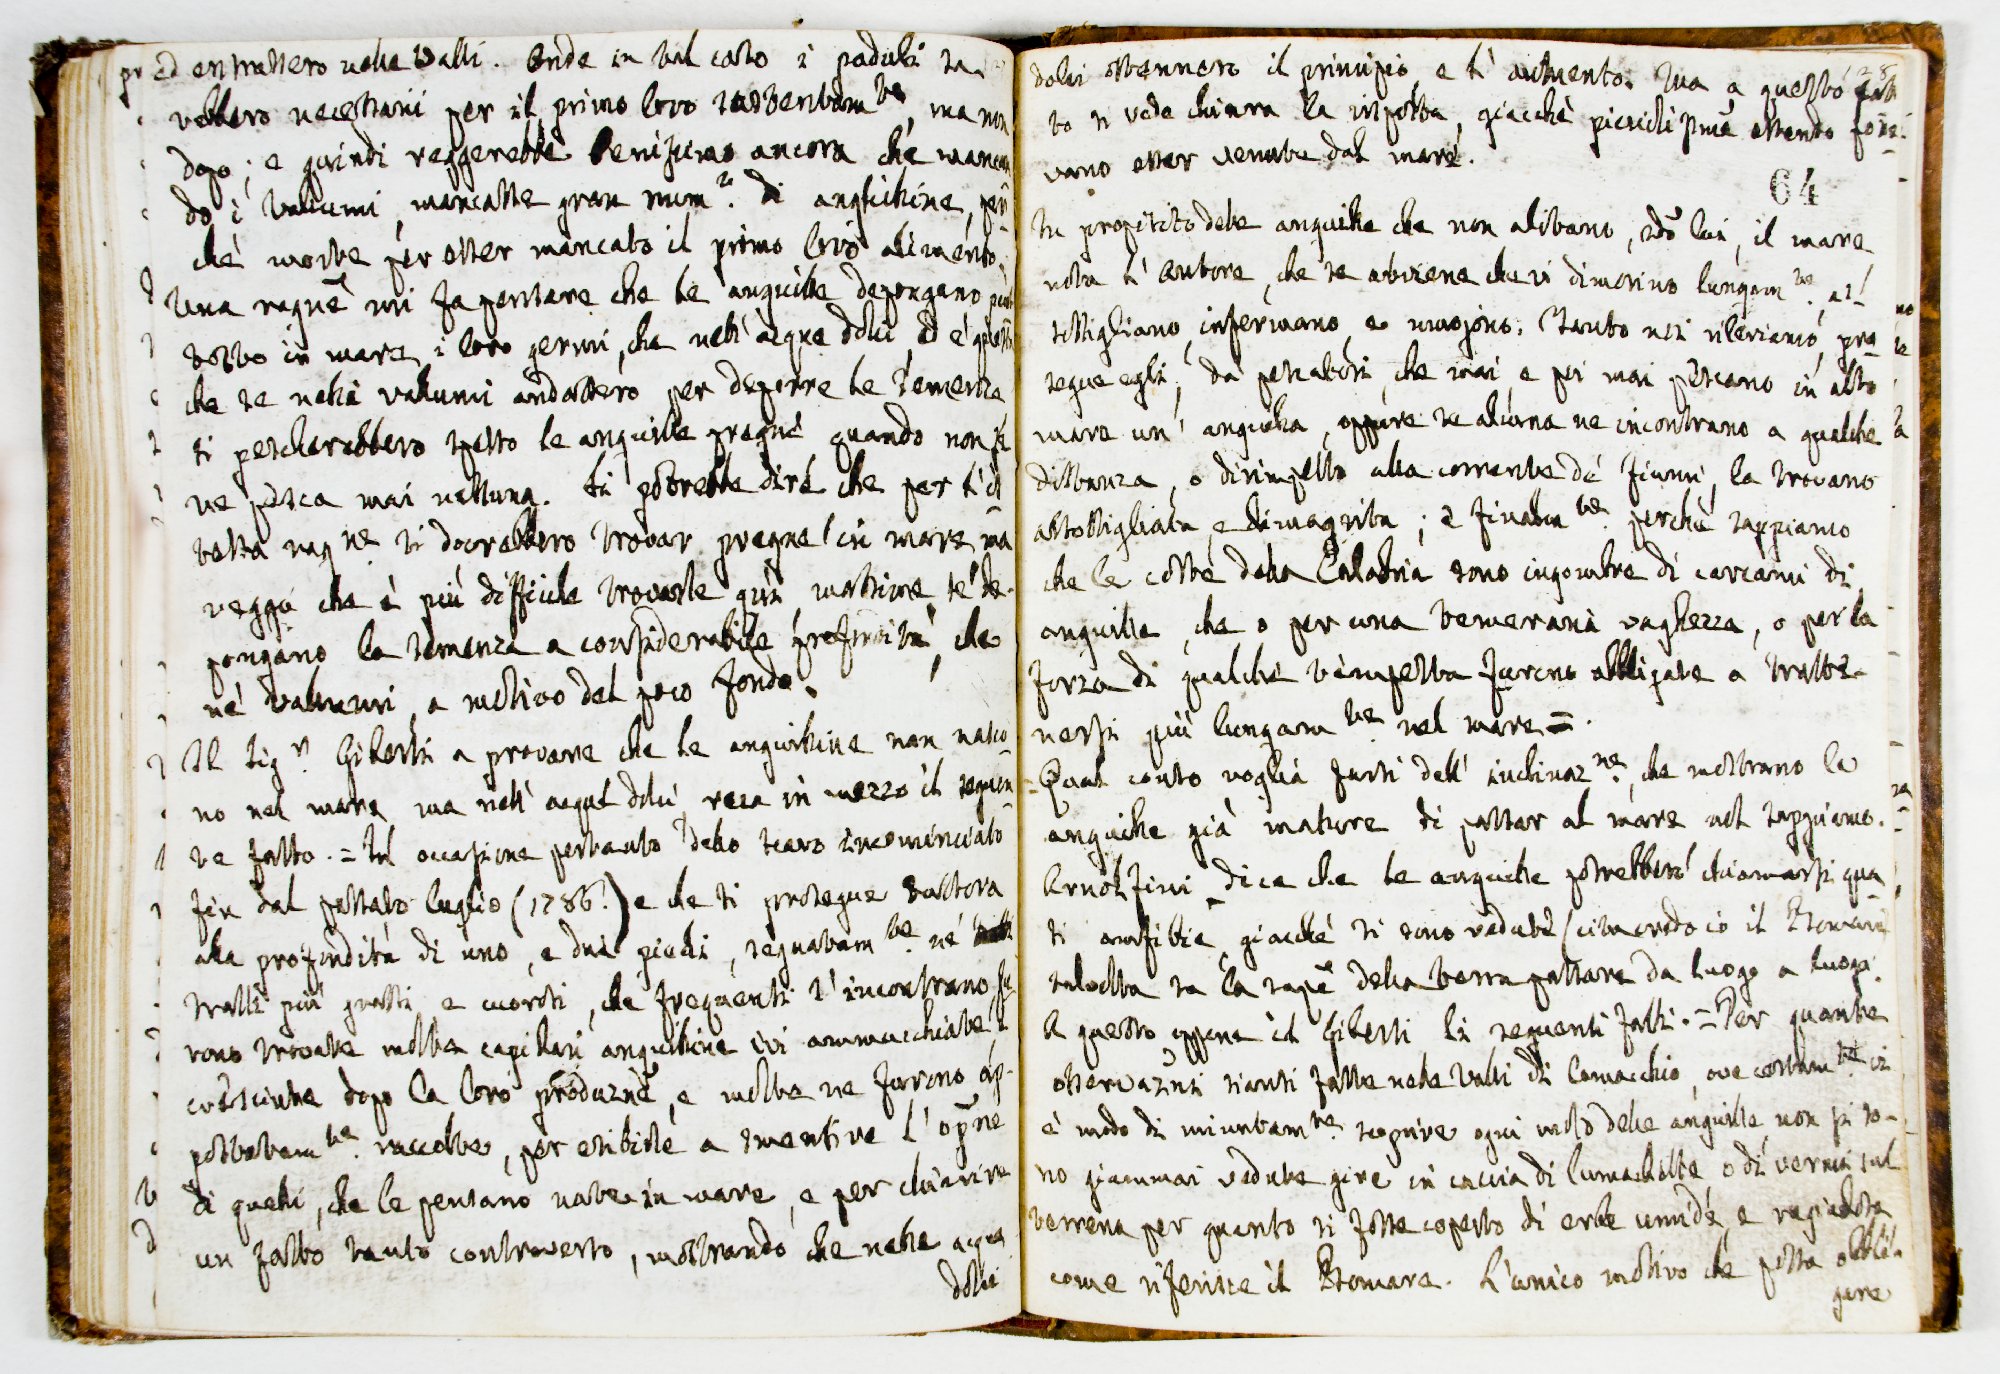 ed entrassero nelle Valli. Onde in tal caso i paduli sa-
rebbero necessarii per il primo loro sostentam.te, ma non
dopo; e quindi reggerebbe benissimo ancora che mancan
do i vallumi, mancasse gran num.o di anguilline, per
chè morte per esser mancato il primo loro alimento.
Una ragne mi fa pensare che le anguille depongano piut
tosto in mare i loro germi, che nell'acque dolci ed è questa
che se nelli vallumi andassero per deporre le semenze
si pescherebbero spesso le anguille pregne quando non se
ne pesca mai nessuna. Si potrebbe dire che per l'is
tessa rag.ne si dovrebbero trovar pregne in mare, ma
veggo che è più difficile trovarle qui, massime se de-
pongano la semenza a considerabile profondità, che
ne' vallumi, a motivo del poco fondo.
Il Sig.r Giberti a provare che le anguilline non nasco-
no nel mare, ma nell'acque dolci, reca in mezzo il seguen-
te fatto. = In occasione pertanto dello scavo incominciato
fin dal passato luglio (1786.) e che si prosegue tuttora
alla profondità di uno, e due piedi, segnatam.te ne'
tratti più grassi e cuorosi, che frequenti s'incontrano, fu
rono trovate molte capillari anguilline ivi ammucchiate, e
cresciute dopo la loro produzne, e molte ne furono ap-
postatam.te raccolte, per esibirle a smentire l'opne
di quelli, che le pensano nate in mare, e per chiarire
un fatto tanto controverso, mostrando che nelle acque
dolci
dolci ottennero il principio e l'aumento. Ma a questo fat
to si vede chiara la risposta, giacchè piccioli pme essendo pote-
vano esser venute dal mare.
64
In proposito delle anguille che non alibano, sdo lui, il mare
nota l'Autore, che se avviene che vi dimorino lungam.te, as-
sottigliano, infermano, e muojono. Tanto noi rileviamo, pro
segue egli, da pescatori, che mai e poi mai pescano in alto
mare un'anguilla, oppure se alcuna ne incontrano a qualche
distanza, o dirimpetto alla corrente de' fiumi, la trovano
assottigliata, e dimagrita; e finalm.te perchè sappiamo
che le coste della Calabria sono ingombre di carcami di
anguille, che o per una temeraria vaghezza, o per la
forza di qualche tempesta furono obbligate a tratte-
nersi più lungam.te nel mare =.
= Qual conto voglia farsi dell'inclinaz.ne, che mostrano le
anguille già mature di passar al mare nol sappiamo.
Arnolfini dice che le anguille potrebbero chiamarsi qua
si anfibie, giacchè si sono vedute (citando ciò il Bomare)
talvolta sa la supe della terra passare da luogo a luogo.
A questo oppone il Giberti li seguenti fatti. = Per quante
osservazni siansi fatte nelle Valli di Comacchio, ove certam.te vi
è modo di minutam.te scoprire ogni moto delle anguille, non si so-
no giammai vedute gire in caccia di lumachette, o di vermi sul
terreno per quanto si fosse coperto di erbe umide, e rugiadose
come riferisce il Bomare. L'unico motivo che possa obbli-
gare